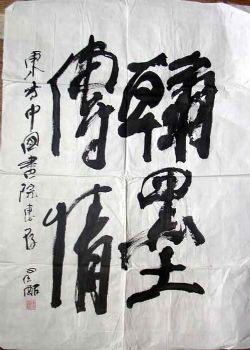 翰墨
傳情
東方中國書院惠存